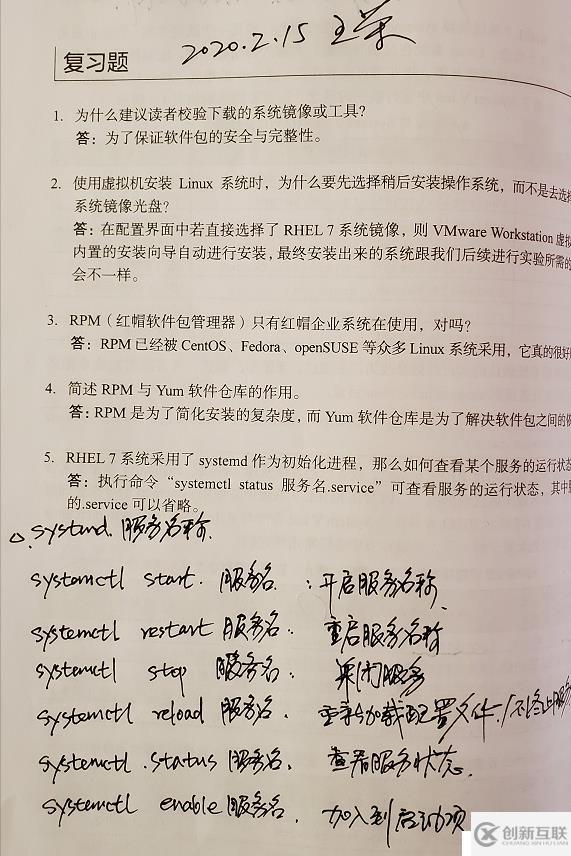 2020.2.15 王荣
复习题
1. 为什么建议读者校验下载的系统镜像或工具?
答:为了保证软件包的安全与完整性。
2. 使用虚拟机安装 Linux 系统时,为什么要先选择稍后安装操作系统,而不是去选择
系统镜像光盘?
答:在配置界面中若直接选择了 RHEL 7 系统镜像,则 VMware Workstation 虚拟
内置的安装向导自动进行安装,最终安装出来的系统跟我们后续进行实验所需的
会不一样。
3. RPM(红帽软件包管理器)只有红帽企业系统在使用,对吗?
答:RPM 已经被 CentOS、Fedora、openSUSE 等众多 Linux 系统采用,它真的很好
4. 简述 RPM 与 Yum 软件仓库的作用。
答:RPM 是为了简化安装的复杂度,而 Yum 软件仓库是为了解决软件包之间的
5. RHEL 7 系统采用了 systemd 作为初始化进程,那么如何查看某个服务的运行状态
答:执行命令“systemctl status 服务名.service”可查看服务的运行状态,其中
的.service 可以省略。
△. systemd 服务名称
systemctl start 服务名 : 开启服务名称
systemctl restart 服务名: 重启服务名称
systemctl stop 服务名: 关闭服务
systemctl reload 服务名. 重新加载配置文件/不终止服务
systemctl status 服务名. 查看服务状态.
systemctl enable 服务名. 加入到启动项
创新互联
CHUANG XIN HU LIAN